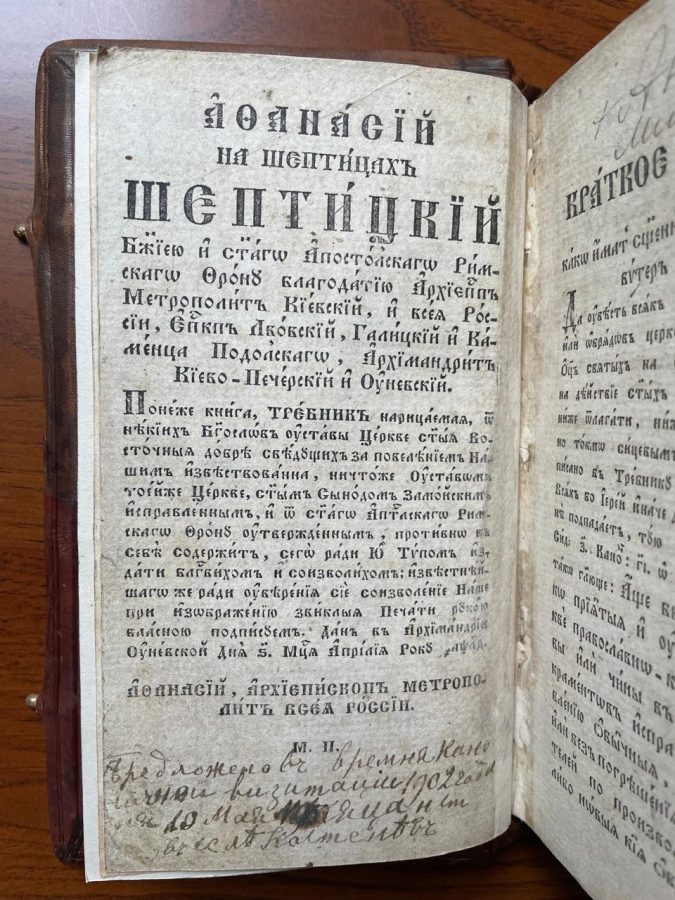 А҆ѲАНА́СЇЙ
НА ШЕПТИ́ЦАХЪ
ШЕПТИ́ЦКЇЙ
Бж҃їею и҆ ст҃агѡ А҆посто́лскагѡ Ри́м-
скагѡ Ѳро́нꙋ благода́тїю А҆рхїеп҃пъ
Митрополи́тъ Кі́евскїй, и҆ всеѧ Рос-
сїи, Е҆п҃кпъ Лво́вскїй, Га́лицкїй и҆ Ка-
ме́нца Подо́лскагѡ, А҆рхїмандри́тъ
Кїево-Пече́рскїй и҆ Оу҆не́вскїй.
Поне́же кни́га, Тре́бникъ нарица́емаѧ, ѿ
нѣ́кїихъ Бг҃осло́въ оу҆ста́вы Це́ркве ст҃ыѧ Во-
сто́чныѧ до́брѣ свѣ́дꙋщихъ за повеле́нїемъ На́-
шимъ и҆звѣ́ствованна, ничто́же Оу҆ста́вѡмъ
тоѧ́йже Це́ркве, ст҃ы́мъ Сѵно́домъ Замо́йскимъ
и҆спра́вленнымъ, и҆ ѿ ст҃а́гѡ А҆пт҃лскагѡ Ри́м-
скагѡ Ѳро́нꙋ оу҆твержде́ннымъ, проти́вно въ
себѣ̀ содержи́тъ, сегѡ̀ ра́ди ю҆̀ Тѵ́помъ и҆з-
да́ти бл҃гви́хомъ и҆ соизво́лихомъ: и҆звѣ́стнѣй-
шагѡ же ра́ди оу҆вѣре́нїѧ сїѐ соизволе́нїе На́ше
при и҆зѡбраже́нїю зви́клыѧ Печа́ти рꙋко́ю
вла́сною подпи́сꙋемъ. Да́нъ въ А҆рхїманд́рїи
Оу҆не́вской Днѧ̀ ѕ҃. Мц҃а А҆прі́лїѧ Ро́кꙋ
А҆ѳана́сїй, А҆рхїепи́скопъ Митропо-
ли́тъ всеѧ Ро́ссїи.
М. П.
Предложено въ времня Кано
визитаціи 1902 года
10 Мая
въ селѣ
КРА́ТКОЕ
ка́кѡ и҆́мат̾ сщ҃е́нн
Да оу҆вѣ́сть всѧ́къ
и҆лѝ ѡ҆брѧ́дѡвъ церко
Ѻ҆ц҃ъ ст҃ы́хъ на
на дѣ́йствїе ст҃ы́хъ
ни́же ѿлага́ти, ни́ж
но то́кмѡ си́цевымъ
пи́сано въ Тре́бникꙋ
Всѧ́къ бо І҆ере́й и҆на́че
подпада́етъ,
та́кѡ гл҃юще: А҆́ще
прїѧ́тыѧ и҆
правосла́вно-к
вы и҆лѝ чи́ны в
краме́нтѡвъ и҆спра
вле́нїю ѡ҆бы́чныѧ,
и҆лѝ без̾ погрѣше́нїѧ
те́лей по произво
ли́бо нѡ́выѧ кі́ѧ